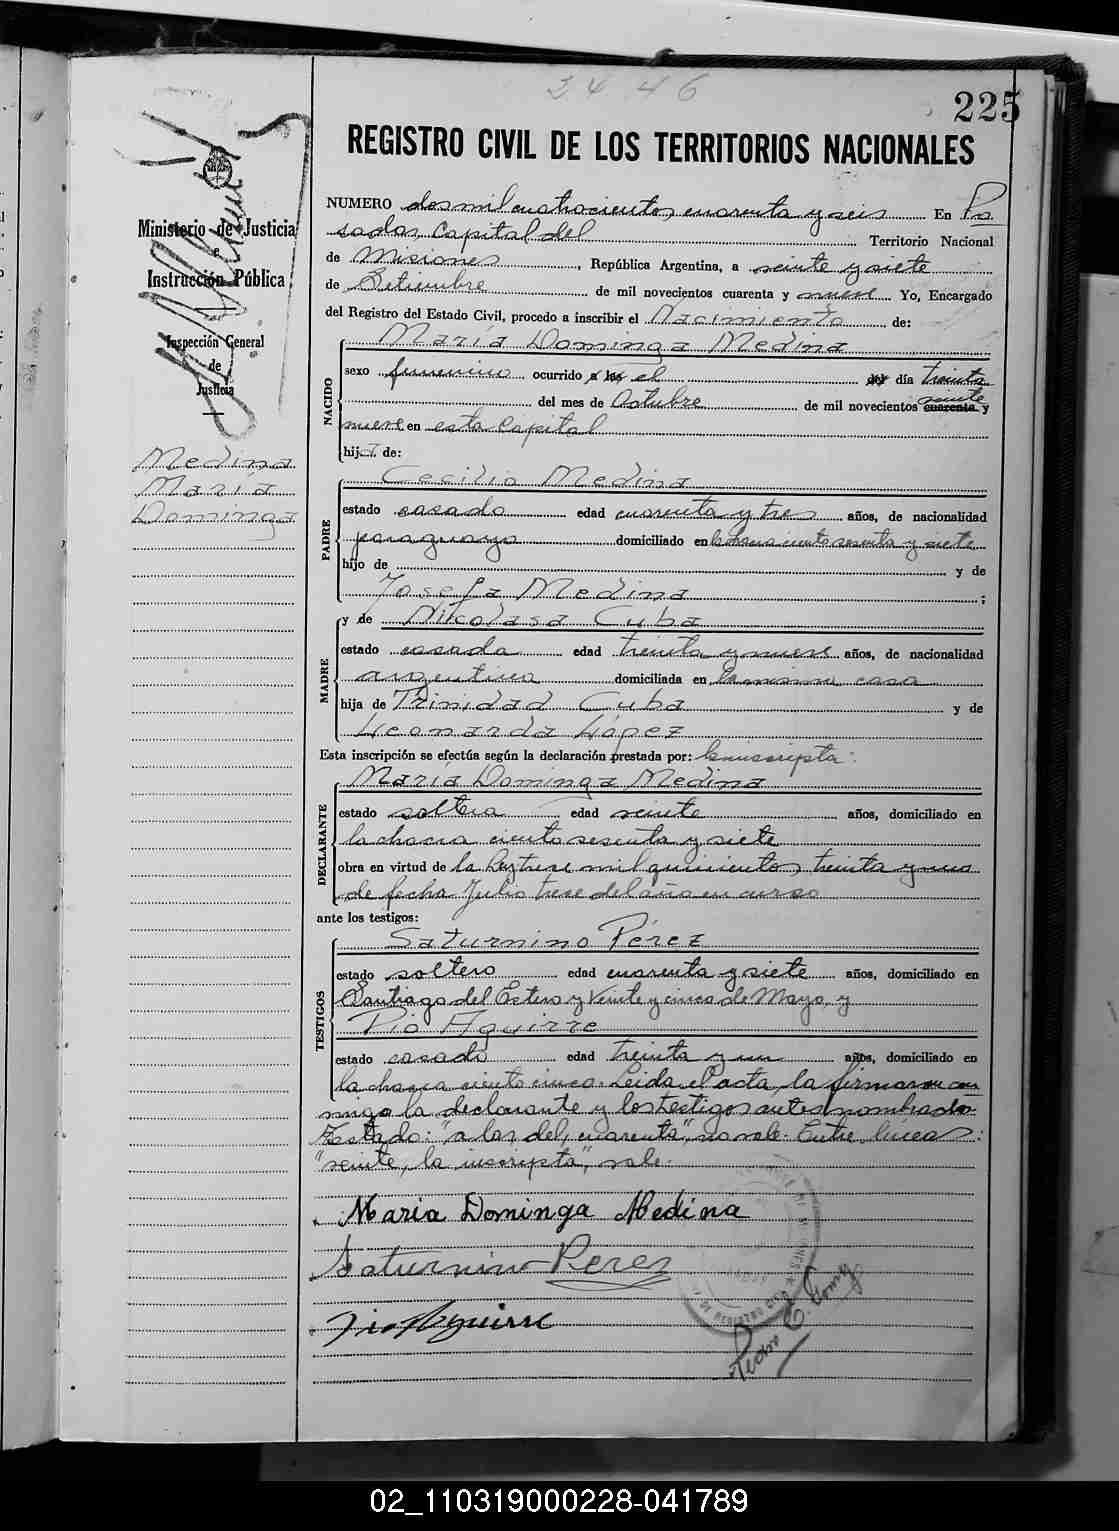 2446
225
REGISTRO CIVIL DE LOS TERRITORIOS NACIONALES
Ministerio de Justicia
e
Instrucción Pública
Inspección General
de
Justicia
Medina
Maria
Dominga
NUMERO dos mil cuatrocientos cuarenta y seis En Po
sadas, Capital del Territorio Nacional
de Misiones, República Argentina, a veinte y siete
de Setiembre de mil novecientos cuarenta y nueve Yo, Encargado
del Registro del Estado Civil, procedo a inscribir el Nacimiento de:
NACIDO
Maria Dominga Medina
sexo femenino ocurrido a las el del día treinta
veinte
del mes de Octubre de mil novecientos cuarenta y
nueve en esta Capital
hija de:
PADRE
Cecilio Medina
estado casado edad cuarenta y tres años, de nacionalidad
paraguayo domiciliado en la chacra ciento sesenta y siete
hijo de y de
Josefa Medina ;
MADRE
y de Nicolasa Cuba
estado casada edad treinta y nueve años, de nacionalidad
argentina domiciliada en la misma casa
hija de Trinidad Cuba y de
Leonarda López
Esta inscripción se efectúa según la declaración prestada por: la inscripta:
DECLARANTE
Maria Dominga Medina
estado soltera edad veinte años, domiciliado en
la chacra ciento sesenta y siete
obra en virtud de la Ley trece mil quinientos treinta y uno
de fecha Julio trece del año en curso
ante los testigos:
TESTIGOS
Saturnino Pérez
estado soltero edad cuarenta y siete años, domiciliado en
Santiago del Estero y Veinte y cinco de Mayo, y
Pio Aguirre
estado casado edad treinta y un años, domiciliado en
la chacra ciento cinco. Leida el acta, la firmaron con
migo la declarante y los testigos antes nombrados.
Testado: "a las, del, cuarenta", no vale. Entre líneas:
"veinte, la inscripta", vale.
Maria Dominga Medina
Saturnino Perez
Pio Aguirre
Pedro C. Gomez
02_110319000228-041789